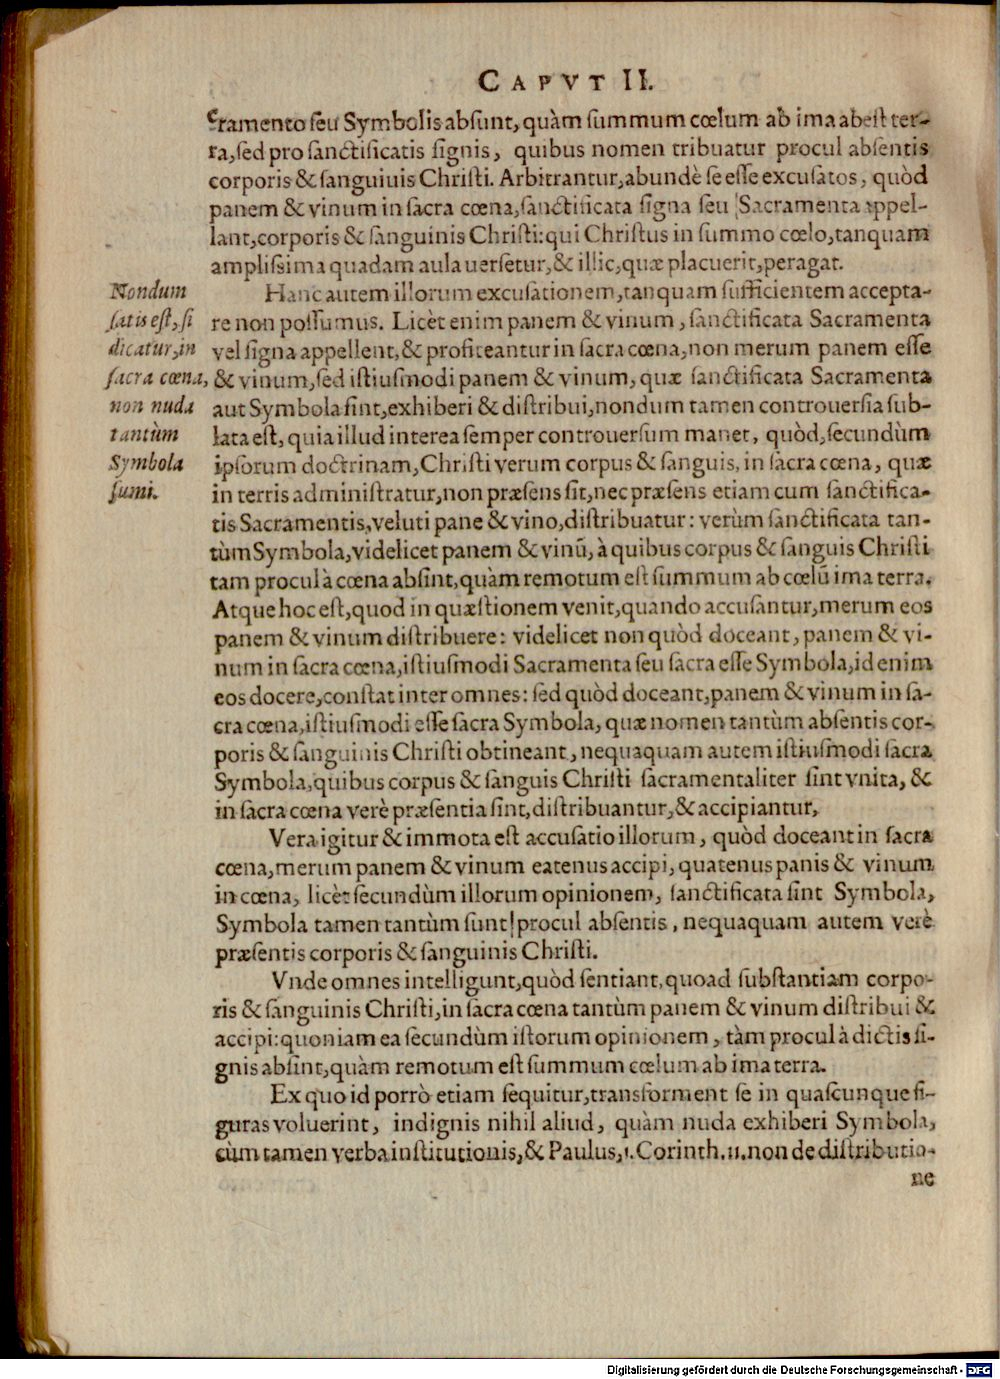 CAPVT II.
cramento seu Symbolis absunt, quàm summum cœlum ab ima abest ter-
ra, sed pro sanctificatis signis, quibus nomen tribuatur procul absentis
corporis & sanguiuis Christi. Arbitrantur, abundè se esse excusatos, quòd
panem & vinum in sacra cœna, sanctificata signa seu Sacramenta appel-
lant, corporis & sanguinis Christi: qui Christus in summo cœlo, tanquam
amplissima quadam aula uersetur, & illic, quæ placuerit, peragat.
Hanc autem illorum excusationem, tanquam sufficientem accepta-
re non possumus. Licèt enim panem & vinum, sanctificata Sacramenta
vel signa appellent, & profiteantur in sacra cœna, non merum panem esse
& vinum, sed istiusmodi panem & vinum, quæ sanctificata Sacramenta
aut Symbola sint, exhiberi & distribui, nondum tamen controuersia sub-
lata est, quia illud interea semper controuersum manet, quòd, secundùm
ipsorum doctrinam, Christi verum corpus & sanguis, in sacra cœna, quæ
in terris administratur, non præsens sit, nec præsens etiam cum sanctifica-
tis Sacramentis, veluti pane & vino, distribuatur: verùm sanctificata tan-
tùm Symbola, videlicet panem & vinũ, à quibus corpus & sanguis Christi
tam procul à cœna absint, quàm remotum est summum ab cœlũ ima terra.
Atque hoc est, quod in quæstionem venit, quando accusantur, merum eos
panem & vinum distribuere: videlicet non quòd doceant, panem & vi-
num in sacra cœna, istiusmodi Sacramenta seu sacra esse Symbola, id enim
eos docere, constat inter omnes: sed quòd doceant, panem & vinum in sa-
cra cœna, istiusmodi esse sacra Symbola, quæ nomen tantùm absentis cor-
poris & sanguinis Christi obtineant, nequaquam autem istiusmodi sacra
Symbola, quibus corpus & sanguis Christi sacramentaliter sint vnita, &
in sacra cœna verè præsentia sint, distribuantur, & accipiantur,
Vera igitur & immota est accusatio illorum, quòd doceant in sacra
cœna, merum panem & vinum eatenus accipi, quatenus panis & vinum
in cœna, licèt secundùm illorum opinionem, sanctificata sint Symbola,
Symbola tamen tantùm sunt procul absentis, nequaquam autem verè
præsentis corporis & sanguinis Christi.
Vnde omnes intelligunt, quòd sentiant, quoad substantiam corpo-
ris & sanguinis Christi, in sacra cœna tantùm panem & vinum distribui &
accipi: quoniam ea secundùm istorum opinionem, tàm procul à dictis si-
gnis absint, quàm remotum est summum cœlum ab ima terra.
Ex quo id porrò etiam sequitur, transforment se in quascunque fi-
guras voluerint, indignis nihil aliud, quàm nuda exhiberi Symbola,
cùm tamen verba institutionis, & Paulus, 1. Corinth. 11. non de distributio-
ne
Nondum
satis est, si
dicatur, in
sacra cœna,
non nuda
tantùm
Symbola
sumi.
Digitalisierung gefördert durch die Deutsche Forschungsgemeinschaft - DFG